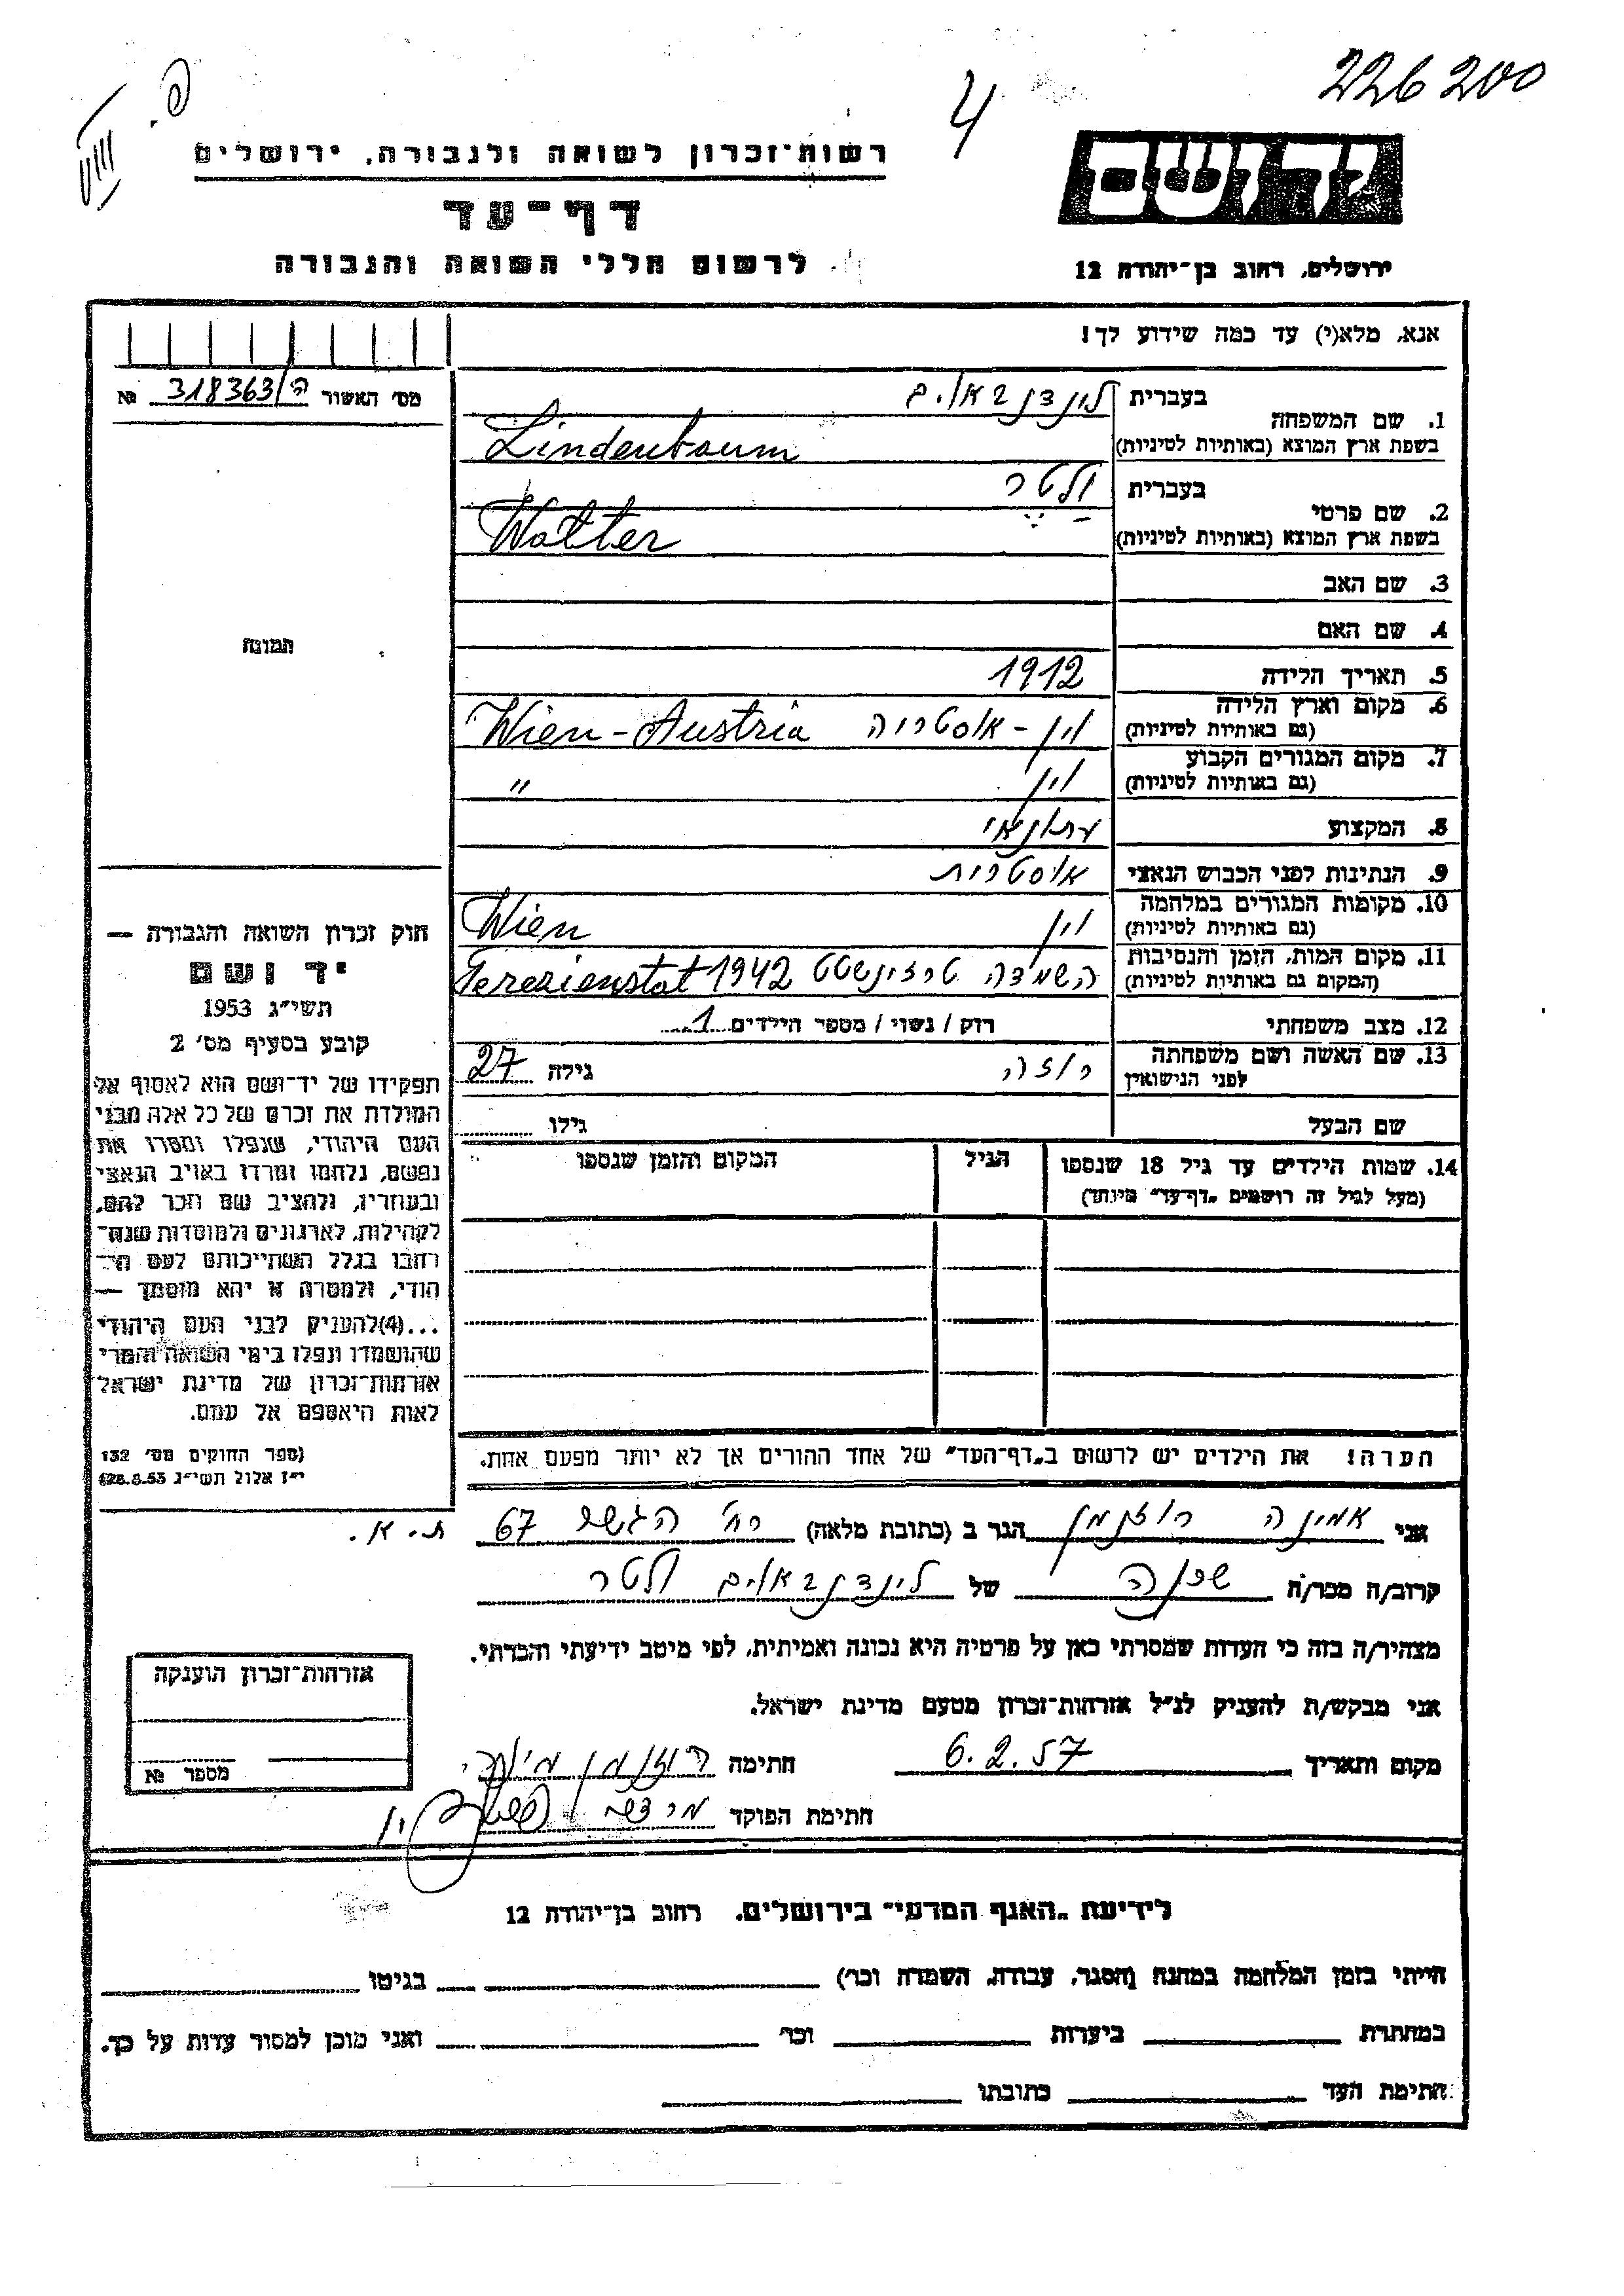 226200
4
פ.
רשות־זכרון לשואה ולגבורה, ירושלים
יד ושם
דף־עד
לרשום חללי השואה והגבורה
ירושלים, רחוב בן־יהודה 12
אנא, מלא(י) עד כמה שידוע לך!
מס׳ האשור 318363/ה №
1. שם המשפחה
בעברית לינדנבאום
בשפת ארץ המוצא (באותיות לטיניות) Lindenbaum
2. שם פרטי
בעברית ולטר
בשפת ארץ המוצא (באותיות לטיניות) Walter
3. שם האב
4. שם האם
תמונה
5. תאריך הלידה 1912
6. מקום וארץ הלידה וין - אוסטריה Wien - Austria
(גם באותיות לטיניות)
7. מקום המגורים הקבוע וין "
(גם באותיות לטיניות)
8. המקצוע עתונאי
9. הנתינות לפני הכבוש הנאצי אוסטרית
10. מקומות המגורים במלחמה וין Wien
(גם באותיות לטיניות)
11. מקום המות, הזמן והנסיבות השמדה טרזינשטט 1942 Terezienstat
(המקום גם באותיות לטיניות)
12. מצב משפחתי רוק / נשוי / מספר הילדים 1
13. שם האשה ושם משפחתה רוזה גילה 27
לפני הנישואין
שם הבעל גילו
14. שמות הילדים עד גיל 18 שנספו הגיל המקום והזמן שנספו
(מעל לגיל זה רושמים „דף־עד״ מיוחד)
הערה! את הילדים יש לרשום ב„דף־העד״ של אחד ההורים אך לא יותר מפעם אחת.
חוק זכרון השואה והגבורה —
יד ושם
תשי״ג 1953
קובע בסעיף מס׳ 2
תפקידו של יד־ושם הוא לאסוף אל
המולדת את זכרם של כל אלה מבני
העם היהודי, שנפלו ומסרו את
נפשם, נלחמו ומרדו באויב הנאצי
ובעוזריו, ולהציב שם וזכר להם,
לקהילות, לארגונים ולמוסדות שנח־
רבו בגלל השתייכותם לעם הי־
הודי, ולמטרה זו יהא מוסמך —
...(4) להעניק לבני העם היהודי
שהושמדו ונפלו בימי השואה והמרי
אזרחות־זכרון של מדינת ישראל
לאות היאספם אל עמם.
(ספר החוקים מס׳ 132
י״ז אלול תשי״ג 28.8.53)
אני אמינה רוזנמן הגר ב (כתובת מלאה) רח׳ הגשר 67 ת.א.
קרוב/ה מכר/ה שכנה של לינדנבאום ולטר
מצהיר/ה בזה כי העדות שמסרתי כאן על פרטיה היא נכונה ואמיתית, לפי מיטב ידיעתי והכרתי.
אני מבקש/ת להעניק לנ״ל אזרחות־זכרון מטעם מדינת ישראל.
מקום ותאריך 6.2.57 חתימה רוזנמן
חתימת הפוקד
אזרחות־זכרון הוענקה
מספר №
לידיעת „האגף המדעי״ בירושלים, רחוב בן־יהודה 12
הייתי בזמן המלחמה במחנה (הסגר, עבודה, השמדה וכו׳) בגיטו
במחתרת ביערות וכו׳ ואני מוכן למסור עדות על כך.
חתימת העד כתובתו